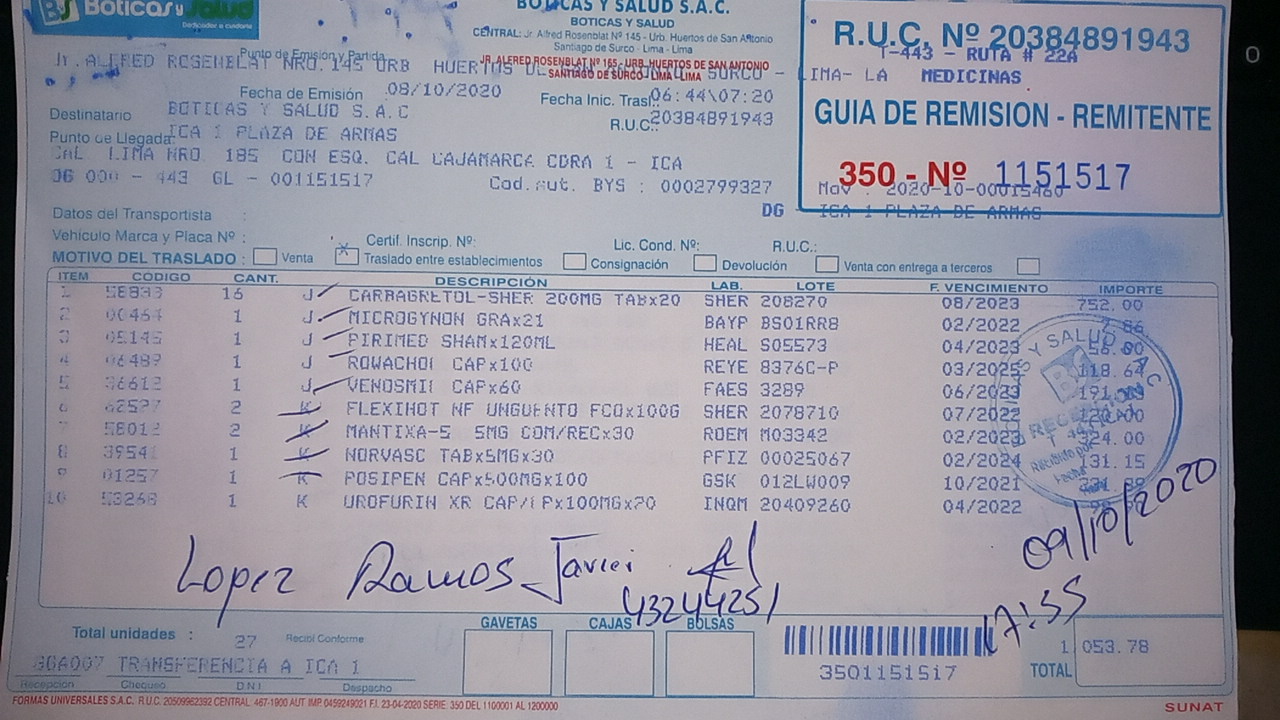 Boticas y Salud
Dedicados a cuidarte
BOTICAS Y SALUD S.A.C.
BOTICAS Y SALUD
CENTRAL: Jr. Alfred Rosenblat Nº 145 - Urb. Huertos de San Antonio
Santiago de Surco - Lima - Lima
JR. ALFRED ROSENBLAT Nº 165 - URB. HUERTOS DE SAN ANTONIO
SANTIAGO DE SURCO - LIMA - LIMA
R.U.C. Nº 20384891943
T-443 - RUTA # 22A
Punto de Emisión y Partida
Jr. ALFRED ROSENBLAT NRO. 145 URB HUERTOS SURCO - LIMA- LA MEDICINAS
Fecha de Emisión 08/10/2020
Fecha Inic. Trasl. 06:44\07:20
GUIA DE REMISION - REMITENTE
Destinatario BOTICAS Y SALUD S.A.C
R.U.C.: 20384891943
Punto de Llegada: ICA 1 PLAZA DE ARMAS
CAL LIMA NRO 185 CON ESQ. CAL CAJAMARCA CDRA 1 - ICA
350 - Nº 1151517
06 000 - 443 GL - 001151517 Cod.Aut. BYS : 0002799327
Mov : 2020-10-00015460
DG - ICA 1 PLAZA DE ARMAS
Datos del Transportista :
Vehículo Marca y Placa Nº : Certif. Inscrip. Nº: Lic. Cond. Nº: R.U.C.:
MOTIVO DEL TRASLADO : Venta X Traslado entre establecimientos Consignación Devolución Venta con entrega a terceros
ITEM CODIGO CANT. DESCRIPCIÓN LAB. LOTE F. VENCIMIENTO IMPORTE
1 16 J CARBAGRETOL-SHER 200MG TABx20 SHER 208270 08/2023 752.00
2 00464 1 J MICROGYNON GRAx21 BAYP BS01RR8 02/2022 7.86
3 05145 1 J PIRIMED SHAMx120ML HEAL S05573 04/2023 56.80
4 06489 1 J ROWACHOL CAPx100 REYE 8376C-P 03/2025 118.64
5 36612 1 J VENOSMIL CAPx60 FAES 3289 06/2023
6 62527 2 K FLEXIHOT NF UNGUENTO FCOx100G SHER 2078710 07/2022
7 58012 2 K MANTIXA-5 5MG COM/RECx30 ROEM M03342 02/2023 324.00
8 39541 1 K NORVASC TABx5MGx30 PFIZ 00025067 02/2024 131.15
9 01257 1 K POSIPEN CAPx500MGx100 GSK 012LW009 10/2021
10 53268 1 K UROFURIN XR CAP/LPx100MGx20 INQM 20409260 04/2022
Y SALUD S.A.C.
Recibido por
Fecha
09/10/2020
Lopez Ramos Javier
43244251
17:55
Total unidades : 27 Recibi Conforme
GAVETAS CAJAS BOLSAS
3501151517
TOTAL 1 053.78
GGA007 TRANSFERENCIA A ICA 1
Recepción Chequeo D.N.I Despacho
FORMAS UNIVERSALES S.A.C. R.U.C. 20509962392 CENTRAL: 467-1900 AUT. IMP. 0459249021 F.I. 23-04-2020 SERIE: 350 DEL 1100001 AL 1200000
SUNAT